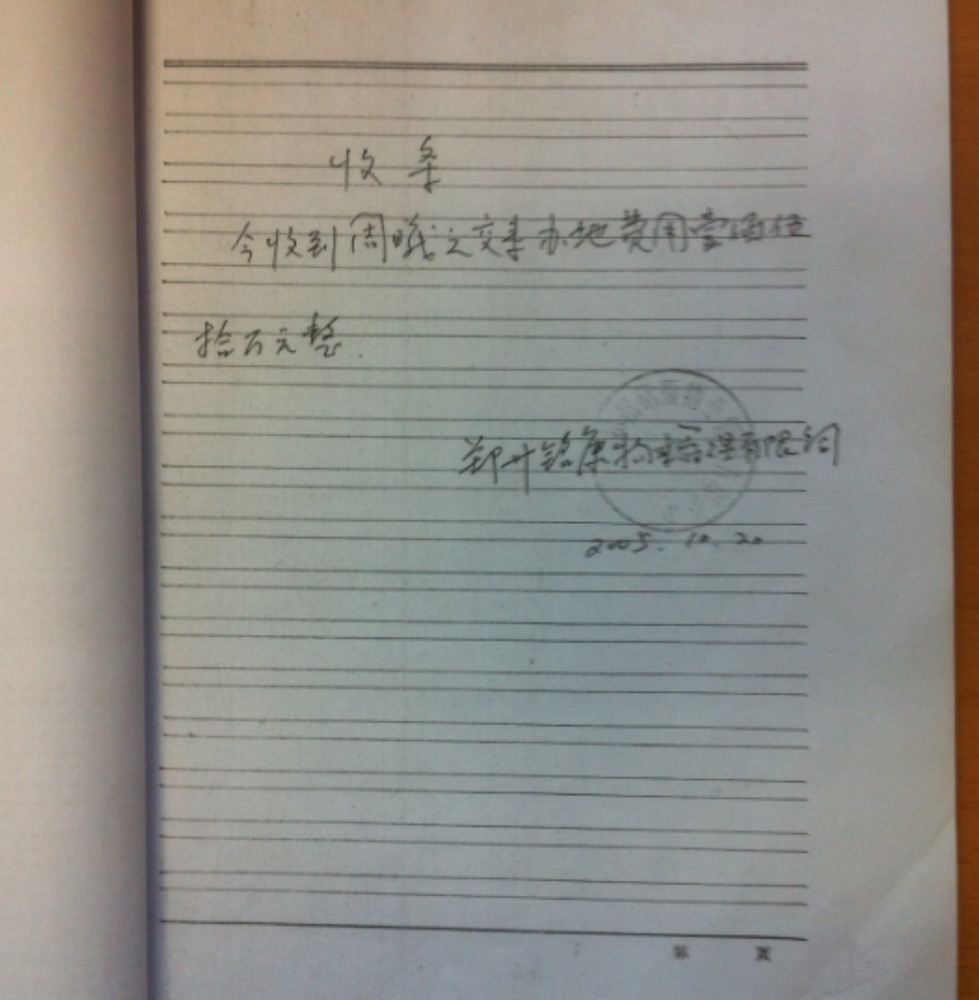 收条
今收到周曦之交来办地费用壹佰伍
拾万元整.
郑州铭康物业管理有限公司
2005.10.20
第 页